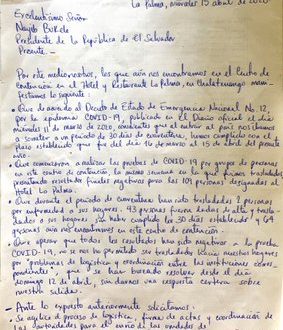 La Palma, miércoles 15 abril de 2020
Excelentísimo Señor
Nayib Bukele
Presidente de la República de El Salvador
Presente.-
Por este medio nosotros, los que aún nos encontramos en el Centro de
contención en el Hotel y Restaurante La Palma, en Chalatenango mani-
festamos lo siguiente:
• Que de acuerdo al Decreto de Estado de Emergencia Nacional No. 12,
por la epidemia COVID-19, publicado en el Diario oficial el día
miércoles 11 de marzo de 2020, al entrar al país nos íbamos
a someter a un período de 30 días de cuarentena, hemos cumplido con el
plazo establecido que fue del día 16 de marzo al 15 de abril del presente
año.
• Que comenzaron a realizar las pruebas de COVID-19 por grupo de personas
en este centro de contención, la misma semana en la que fuimos
resultados finales negativos para las 109 personas designadas al
Hotel La Palma.
• Que durante el período de cuarentena han sido trasladadas 2 personas
por enfermedad a sus hogares, 43 personas fueron dadas de alta y trasla-
dados a sus hogares, sin haber cumplido los 30 días establecidos y 64
personas aún nos encontramos en este centro de contención.
• Que a pesar que todos los resultados han sido negativos a la prueba
COVID-19, no se nos ha permitido ser trasladados hacia nuestros hogares
por "problemas de logística y coordinación entre las instituciones corres-
pondientes", que se han buscado resolver desde el día
domingo 12 de abril, sin darnos una respuesta certera sobre
nuestra salida.
- Ante lo expuesto anteriormente solicitamos:
• Se agilice el proceso de logística, firma de actas y coordinación de
las autoridades para el envío de las unidades de